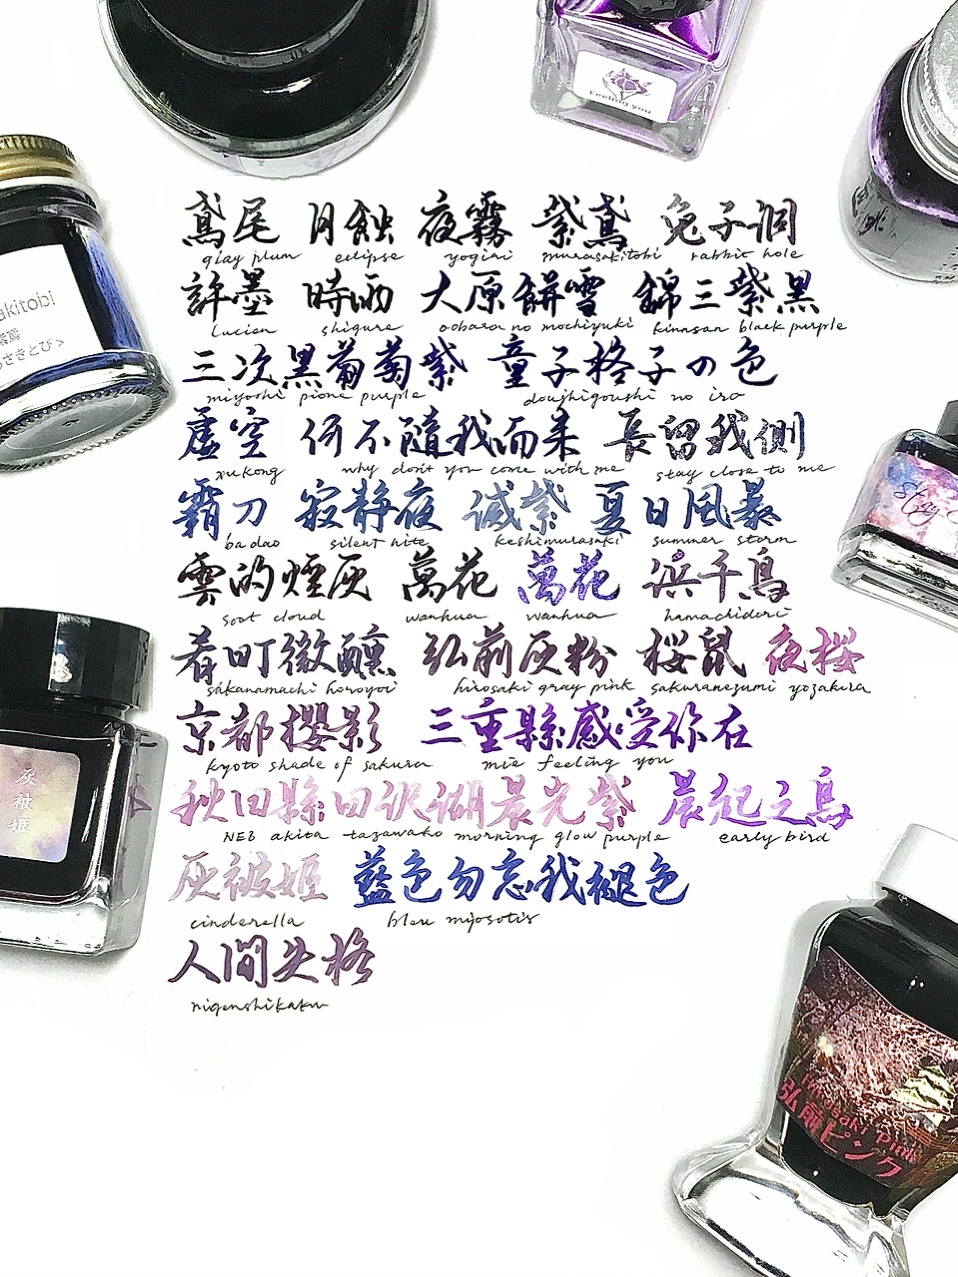 Feeling you
鳶尾 月蝕 夜霧 紫鳶 兔子洞
gray plum eclipse yogiri murasakitobi rabbit hole
許墨 時雨 大原餅雪 錦三紫黑
Lucien shigure oohara no mochiyuki kinnsan black purple
三次黑葡萄紫 童子格子の色
miyoshi pione purple doujhigoushi no iro
虛空 何不隨我而来 長留我側
xukong why don't you come with me stay close to me
霸刀 寂静夜 滅紫 夏日風暴
ba dao silent nite keshimurasaki summer storm
雲的煙灰 萬花 萬花 浜千鳥
soot cloud wanhua wanhua hamachidori
肴町微醺 弘前灰粉 桜鼠 夜桜
sakanamachi horoyoi hirosaki gray pink sakuranezumi yozakura
京都櫻影 三重縣感受你在
kyoto shade of sakura mie feeling you
秋田縣田沢湖晨光紫 晨起之鳥
akita tazawako morning glow purple early bird
灰被姫 藍色勿忘我褪色
cinderella bleu myosotis
人間失格
nigenshikaku
akitobi
紫鳶
さきとび>
灰被姫
Hirosaki Pink
弘前ピンク